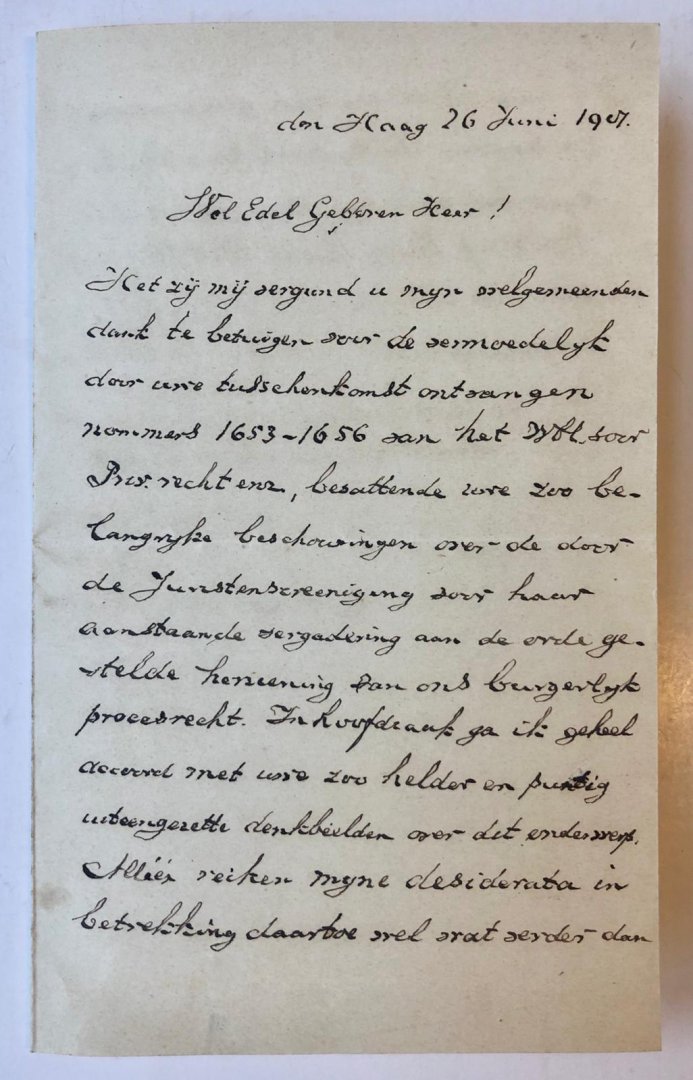 den Haag 26 Juni 1907.
Wel Edel Geboren Heer!
Het zij mij vergund u myn welgemeenden
dank te betuigen voor de vermoedelyk
door uwe tusschenkomst ontvangen
nommers 1653-1656 van het Wbl. voor
Priv. recht enz, bevattende uwe zoo be-
langryke beschouwingen over de door
de Juristenvereeniging voor haar
aanstaande vergadering aan de orde ge-
stelde herziening van ons burgerlyk
procesrecht. In hoofdzaak ga ik geheel
accoord met uwe zoo helder en puntig
uiteengezette denkbeelden over dit onderwerp.
Alléén reiken myne desiderata in
betrekking daartoe wel wat verder dan